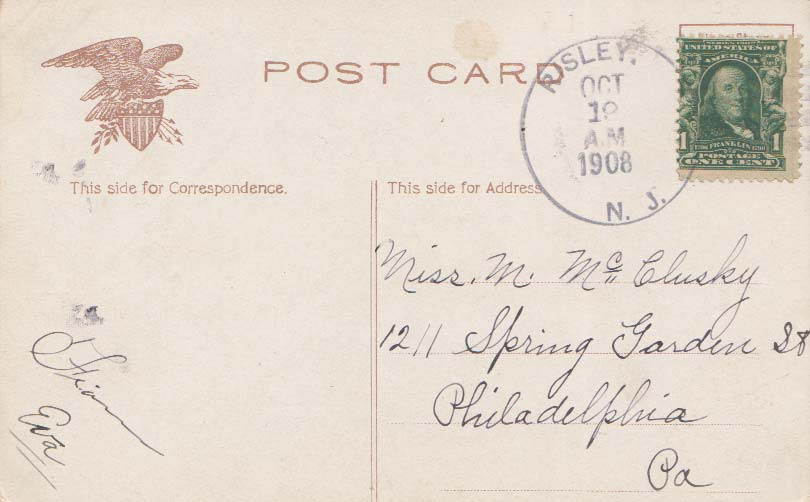 POST CARD
RISLEY,
OCT
19
A.M
1908
N. J.
UNITED STATES OF
AMERICA
1 1706 FRANKLIN 1790 1
POSTAGE
ONE CENT
This side for Correspondence.
This side for Address
Miss. M. McClusky
1211 Spring Garden St
Philadelphia
Pa
From
Eva